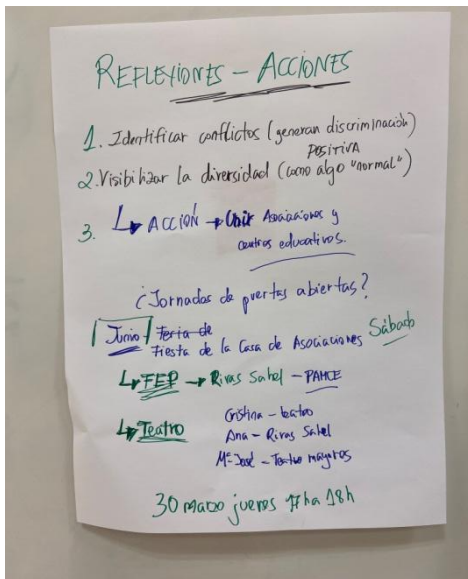 REFLEXIONES - ACCIONES
1. Identificar conflictos (generan discriminación)
POSITIVA
2. Visibilizar la diversidad (como algo "normal")
3. ↳ ACCIÓN → Unir Asociaciones y
centros educativos.
¿Jornadas de puertas abiertas?
Junio Feria de
Fiesta de la Casa de Asociaciones Sábado
↳ FEP → Rivas Sahel - PAMCE
↳ Teatro
Cristina - teatro
Ana - Rivas Sahel
Mª José - Teatro mayores
30 marzo jueves 17h a 18h